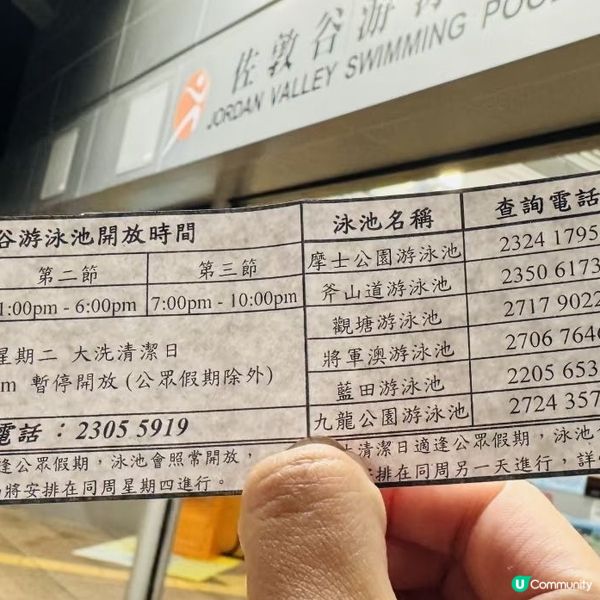 佐敦谷游
JORDAN VALLEY SWIMMING POOL
谷游泳池開放時間
第二節 第三節
1:00pm - 6:00pm 7:00pm - 10:00pm
星期二 大洗清潔日
m 暫停開放 (公眾假期除外)
電話 : 2305 5919
逢公眾假期，泳池會照常開放，
將安排在同周星期四進行。
泳池名稱 查詢電話
摩士公園游泳池 2324 1795
斧山道游泳池 2350 6173
觀塘游泳池 2717 9022
將軍澳游泳池 2706 7646
藍田游泳池 2205 653
九龍公園游泳池 2724 357
清潔日適逢公眾假期，泳池
安排在同周另一天進行，詳
U Community